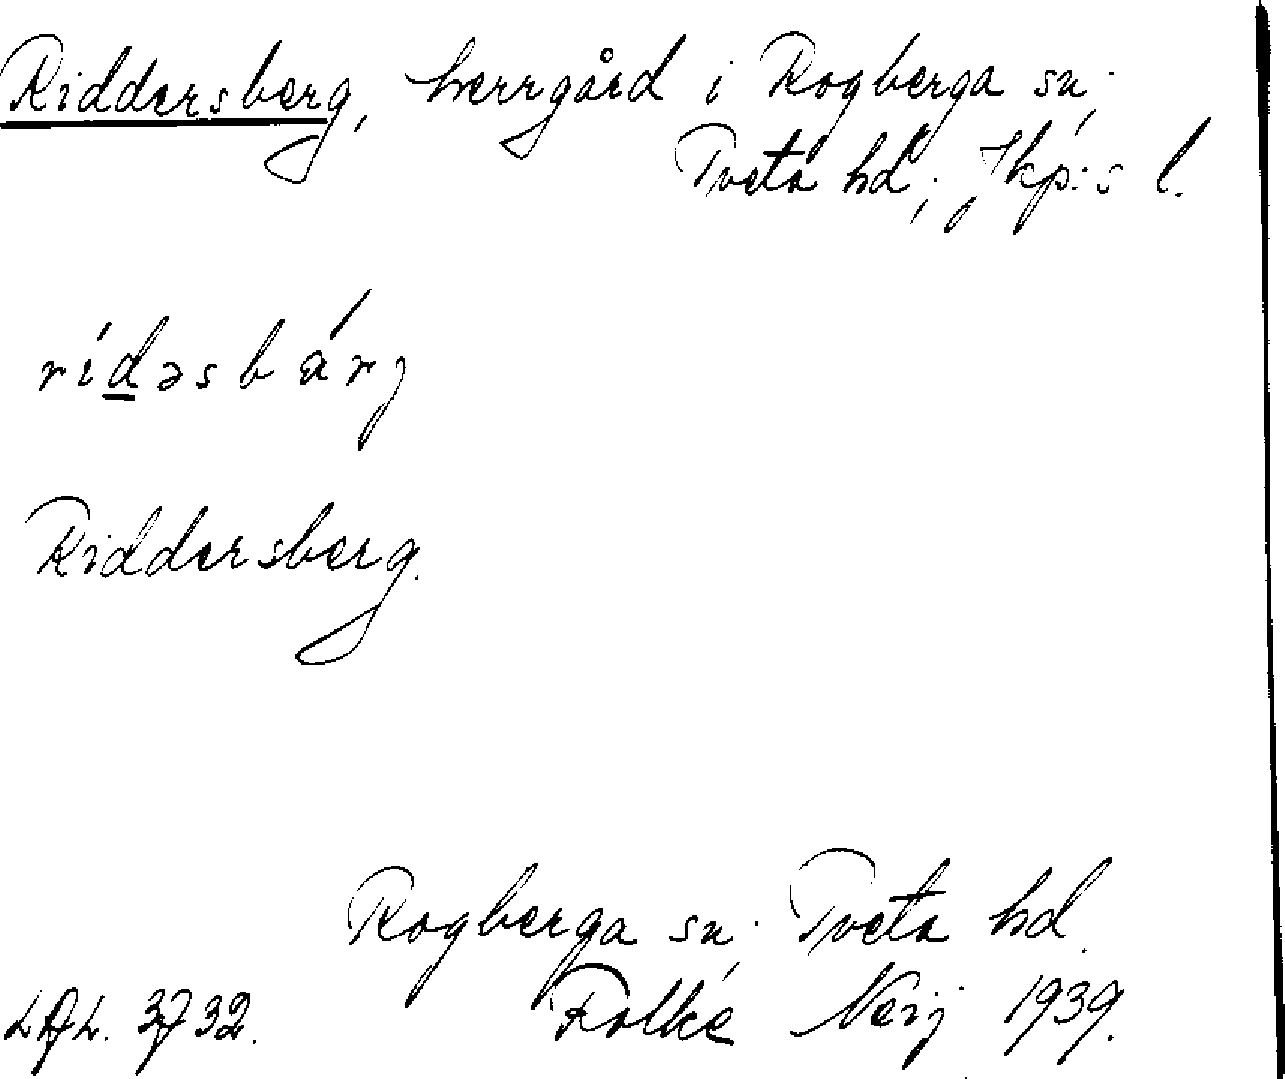 Riddersberg, herrgård i Rogberga sn;
Tveta hd; Jkp:s l.
rídəsbárj
Riddersberg.
Rogberga sn; Tveta hd.
Folke Neij 1939.
3732.